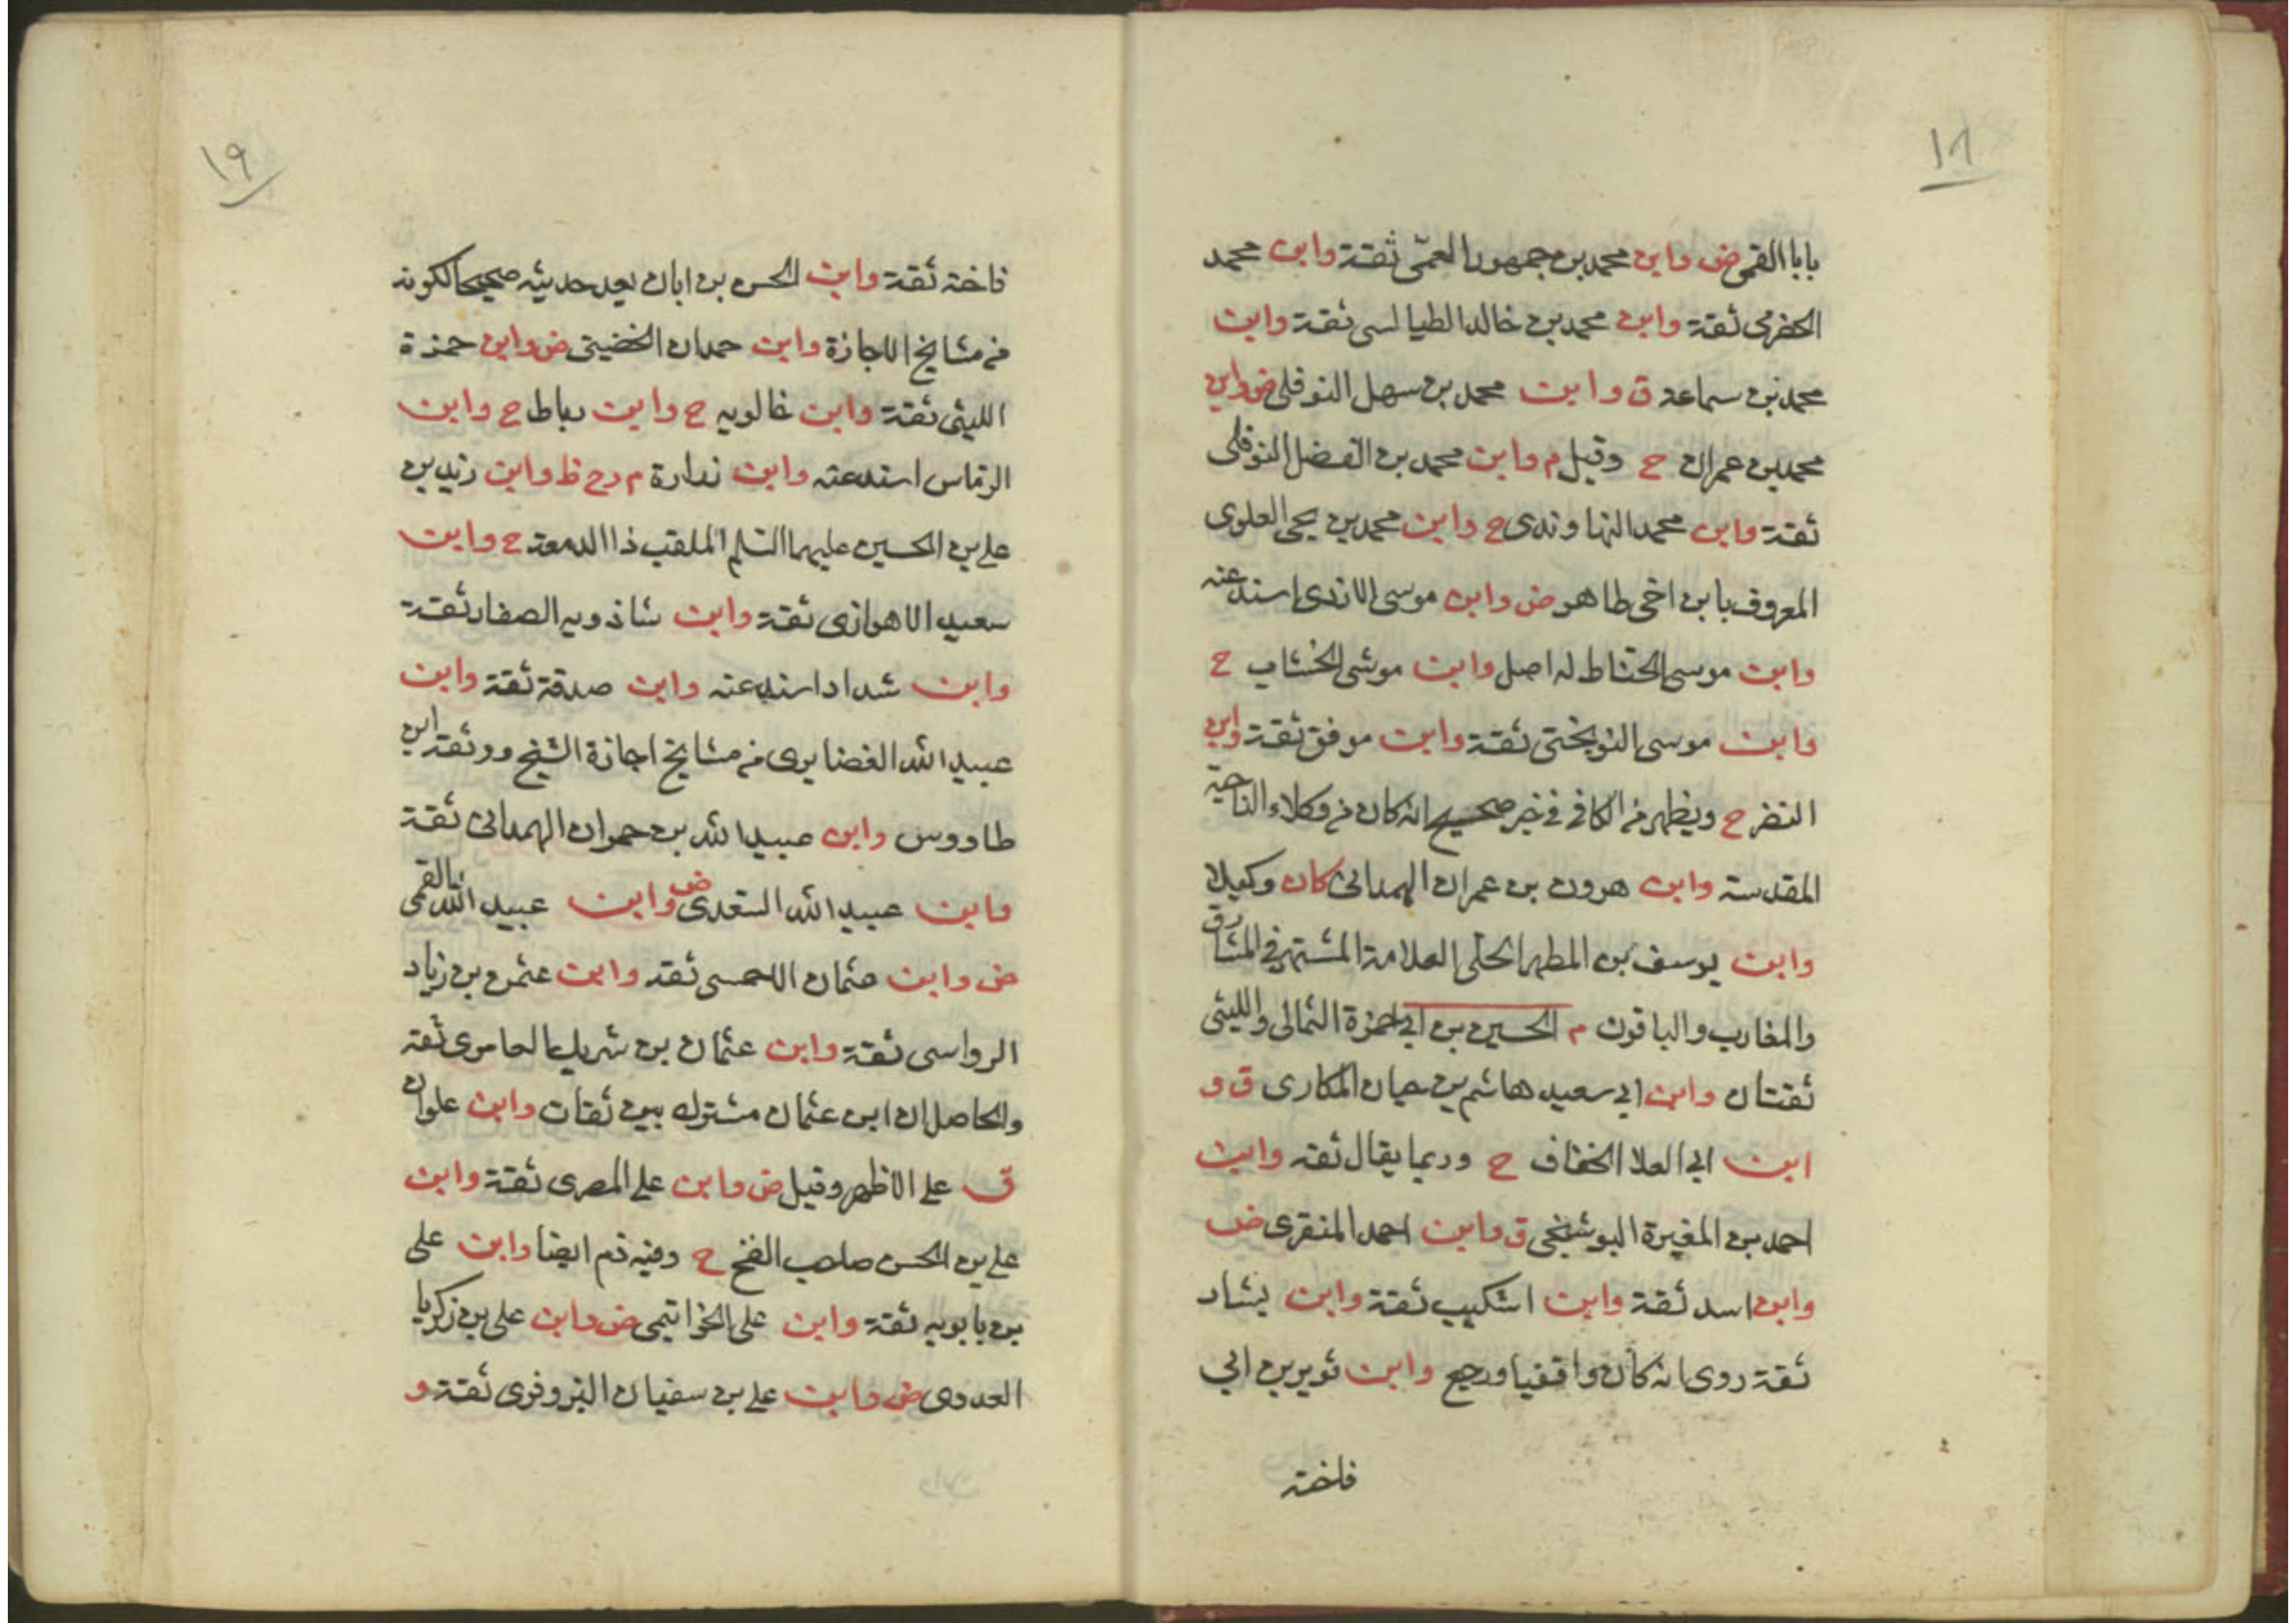 ١٨
بابا القمى ض وابن محمد بن جمهور العمّى ثقة وابن محمد
الحضرمى ثقة وابن محمد بن خالد الطيالسى ثقة وابن
محمد بن سماعة ق وابن محمد بن سهل النوفلى ض وابن
محمد بن عمران ح وقيل م وابن محمد بن الفضل النوفلى
ثقة وابن محمد النهاوندى ح وابن محمد بن يحيى العلوى
المعروف بابن اخى طاهر ض وابن موسى الازدى اسند عنه
وابن موسى الحناط له اصل وابن موسى الخشاب ح
وابن موسى النوبختى ثقة وابن موفق ثقة وابن
النضر ح ويظهر من الكافى فى خبر صحيح انه كان من وكلاء الناحية
المقدسة وابن هرون بن عمران الهمدانى كان وكيلا
وابن يوسف بن المطهر الحلى العلامة المشتهر فى المشارق
والمغارب والباقون م الحسين بن ابى حمزة الثمالى والليثى
ثقتان وابن ابى سعيد هاشم بن حيان المكارى ق و
ابن ابى العلا الخفاف ح وربما يقال ثقه وابن
احمد بن المغيرة البوشنجى ق وابن احمد المنقرى ض
وابن اسد ثقة وابن اشكيب ثقة وابن بشار
ثقة روى انه كان واقفيا ورجع وابن ثوير بن ابى
فاخته
١٩
فاخته ثقة وابن الحسن بن ابان يعد حديثه صحيحا لكونه
من مشايخ الاجازة وابن حمدان الخضينى ض وابن حمزة
الليثى ثقة وابن خالويه ح وابن رباط ح وابن
الرماس اسند عنه وابن زرارة م دح ظ وابن زيد بن
على بن الحسين عليهما السلم الملقب ذا الدمعة ح وابن
سعيد الاهوازى ثقة وابن شاذويه الصفار ثقة
وابن شداد اسند عنه وابن صدقة ثقة وابن
عبيد الله الغضايرى من مشايخ اجازة الشيخ ووثقه ابن
طاووس وابن عبيد الله بن حمران الهمدانى ثقة
وابن عبيد الله السعدى ض وابن عبيد الله القمى
ض وابن عثمان الاحمسى ثقه وابن عثمن بن زياد
الرواسى ثقة وابن عثمان بن شريك العامرى ثقه
والحاصل ان ابن عثمان مشترك بين ثقات وابن علوان
ق على الاظهر وقيل ض وابن على المصرى ثقة وابن
على بن الحسن صاحب الفخ ح وفيه ذم ايضا وابن على
بن بابويه ثقة وابن على الخواتيمى ض وابن على بن زكريا
العدوى ض وابن على بن سفيان البزوفرى ثقة و